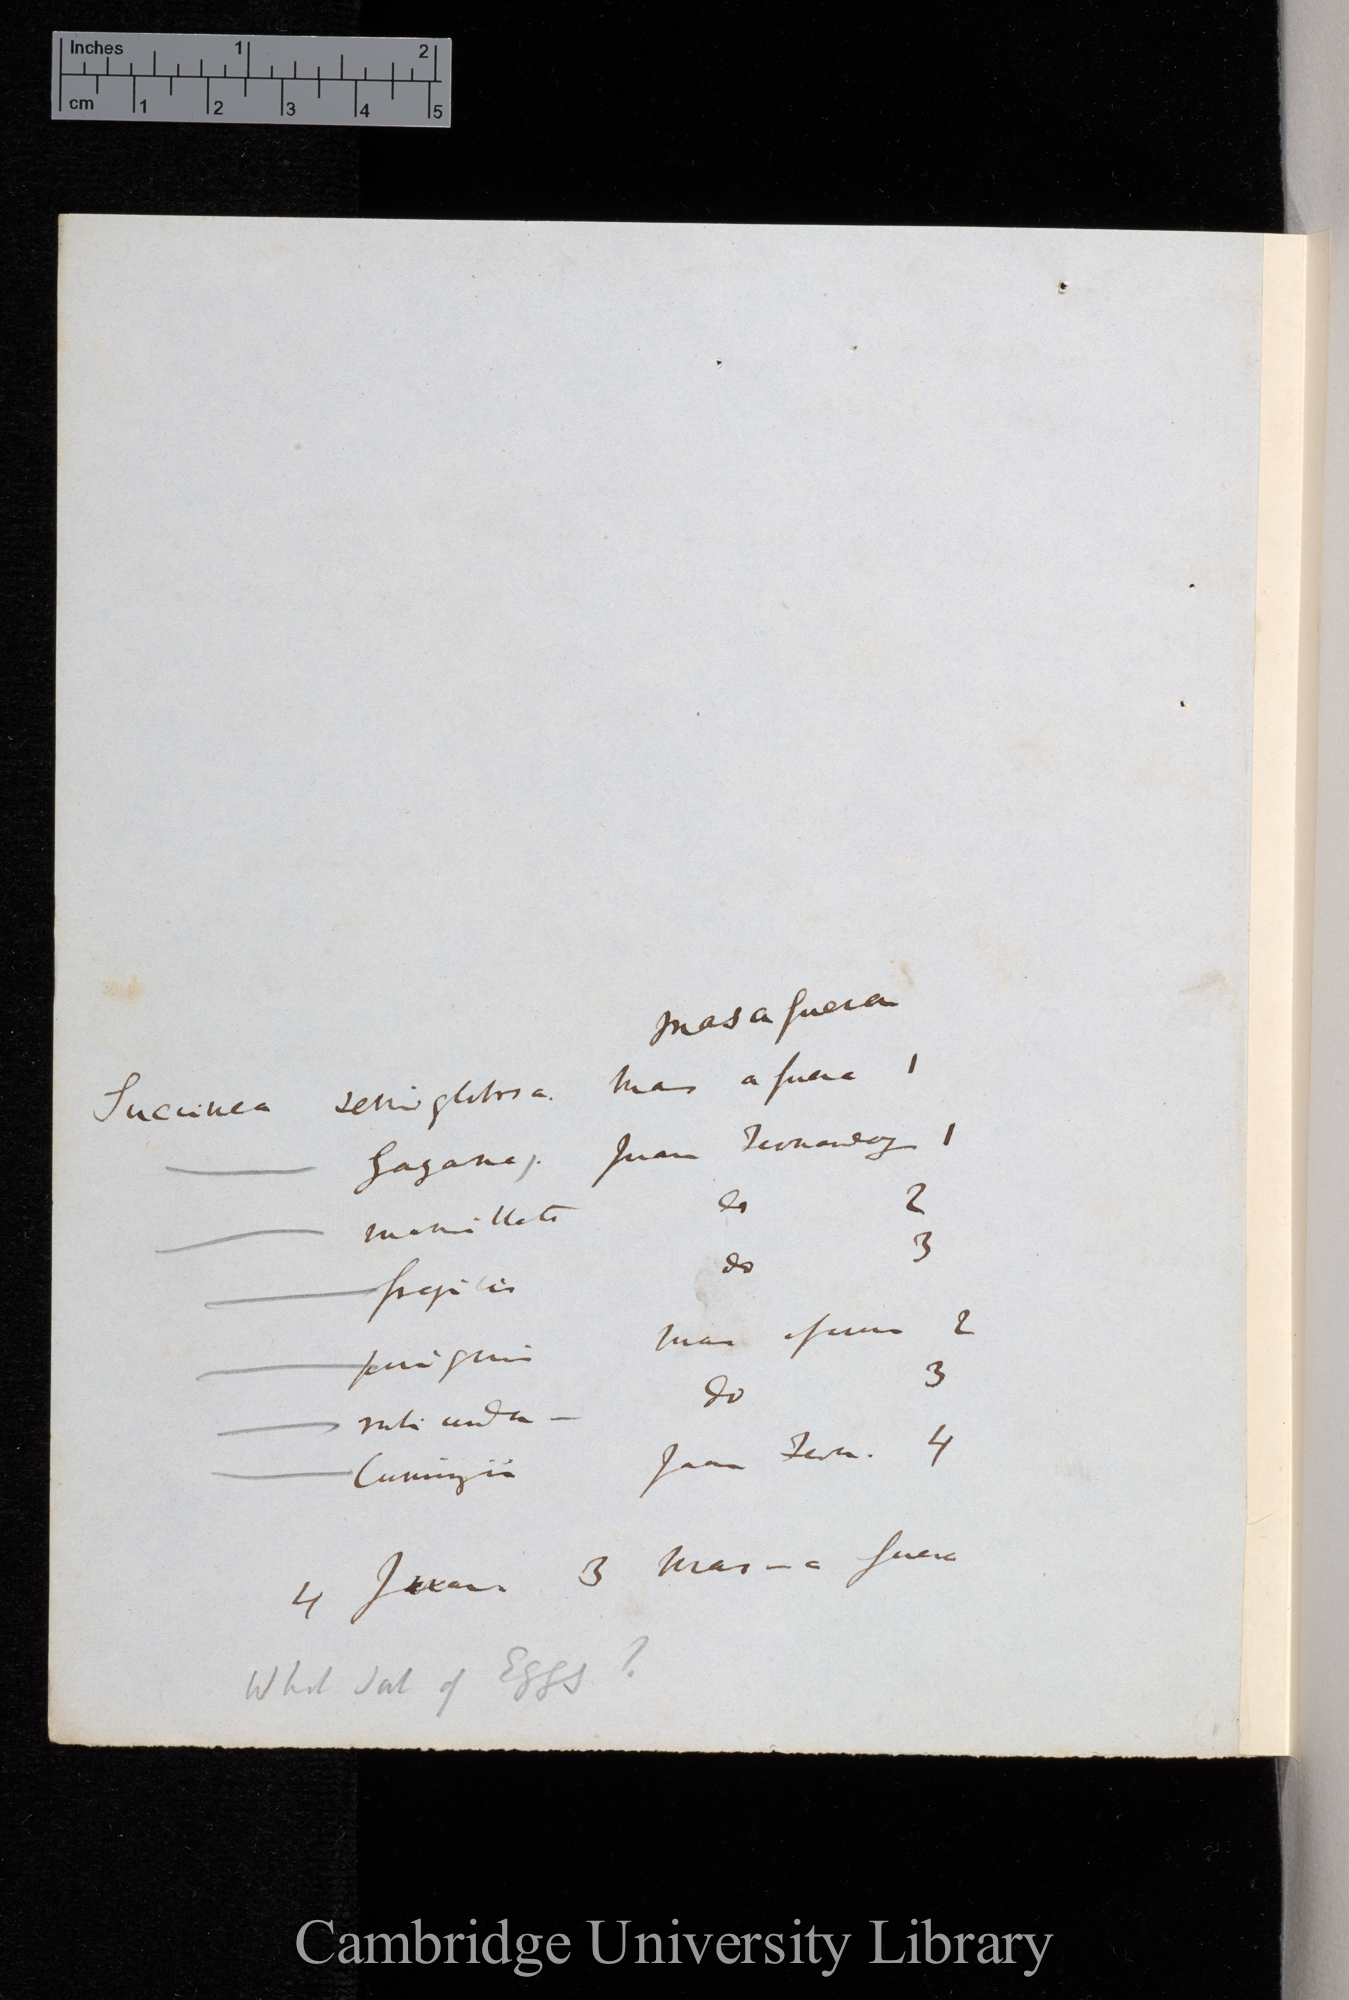 Inches 1 2
cm 1 2 3 4 5
Masafuera
Succinea semiglobosa. Mas a fuera 1
—— Gayana). Juan Fernandez 1
—— mamillata do 2
—— fragilis do 3
—— pinguis Mas afuera 2
—— rubicunda — do 3
—— Cumingii Juan Fern. 4
4 Juan 3 Mas-a fuera
What sort of Eggs?
Cambridge University Library